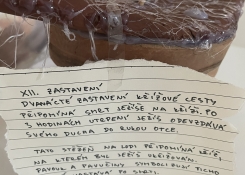 XII. ZASTAVENÍ
DVANÁCTÉ ZASTAVENÍ KŘÍŽOVÉ CESTY
PŘIPOMÍNÁ SMRT JEŽÍŠE NA KŘÍŽI. PO
3 HODINÁCH UTRPENÍ JEŽÍŠ ODEVZDÁVÁ
SVÉHO DUCHA DO RUKOU OTCE.
TATO STĚŽEŇ NA LODI PŘIPOMÍNÁ KŘÍŽ,
NA KTERÉM BYL JEŽÍŠ UKŘIŽOVÁN.
PAVOUK A PAVUČINY SYMBOLIZUJÍ TICHO
PO SMRTI